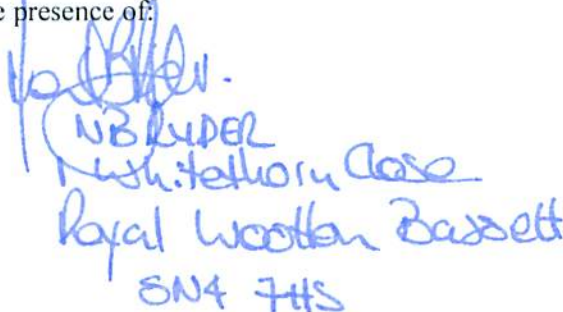 e presence of:
NB RYDER
1 Whitethorn Close
Royal Wootton Bassett
SN4 7HS